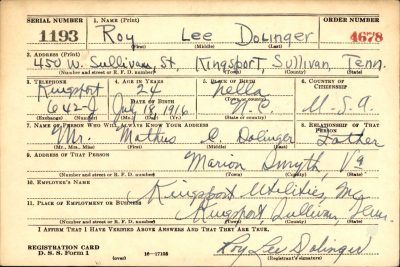 SERIAL NUMBER 1. NAME (Print) ORDER NUMBER
1193 Roy Lee Dolinger 4678
(First) (Middle) (Last)
2. ADDRESS (Print)
450 W. Sullivan St. Kingsport, Sullivan, Tenn.
(Number and street or R. F. D. number) (Town) (County) (State)
3. TELEPHONE 4. AGE IN YEARS 5. PLACE OF BIRTH 6. COUNTRY OF CITIZENSHIP
Kingsport 24 Nella
DATE OF BIRTH
642-J July 18 1916 N. C. U.S.A
(Exchange) (Number) (Mo.) (Day) (Yr.) (State or country)
7. NAME OF PERSON WHO WILL ALWAYS KNOW YOUR ADDRESS 8. RELATIONSHIP OF THAT PERSON
Mr. Mathus C. Dolinger Father
(Mr., Mrs., Miss) (First) (Middle) (Last)
9. ADDRESS OF THAT PERSON
Marion Smyth, Va
(Number and street or R. F. D. number) (Town) (County) (State)
10. EMPLOYER'S NAME
Kingsport Utilities, Inc
11. PLACE OF EMPLOYMENT OR BUSINESS
Kingsport, Sullivan, Tenn.
(Number and street or R. F. D. number) (Town) (County) (State)
I AFFIRM THAT I HAVE VERIFIED ABOVE ANSWERS AND THAT THEY ARE TRUE.
REGISTRATION CARD
D. S. S. Form 1 (over) 16—17105 Roy Lee Dolinger
(Registrant's signature)